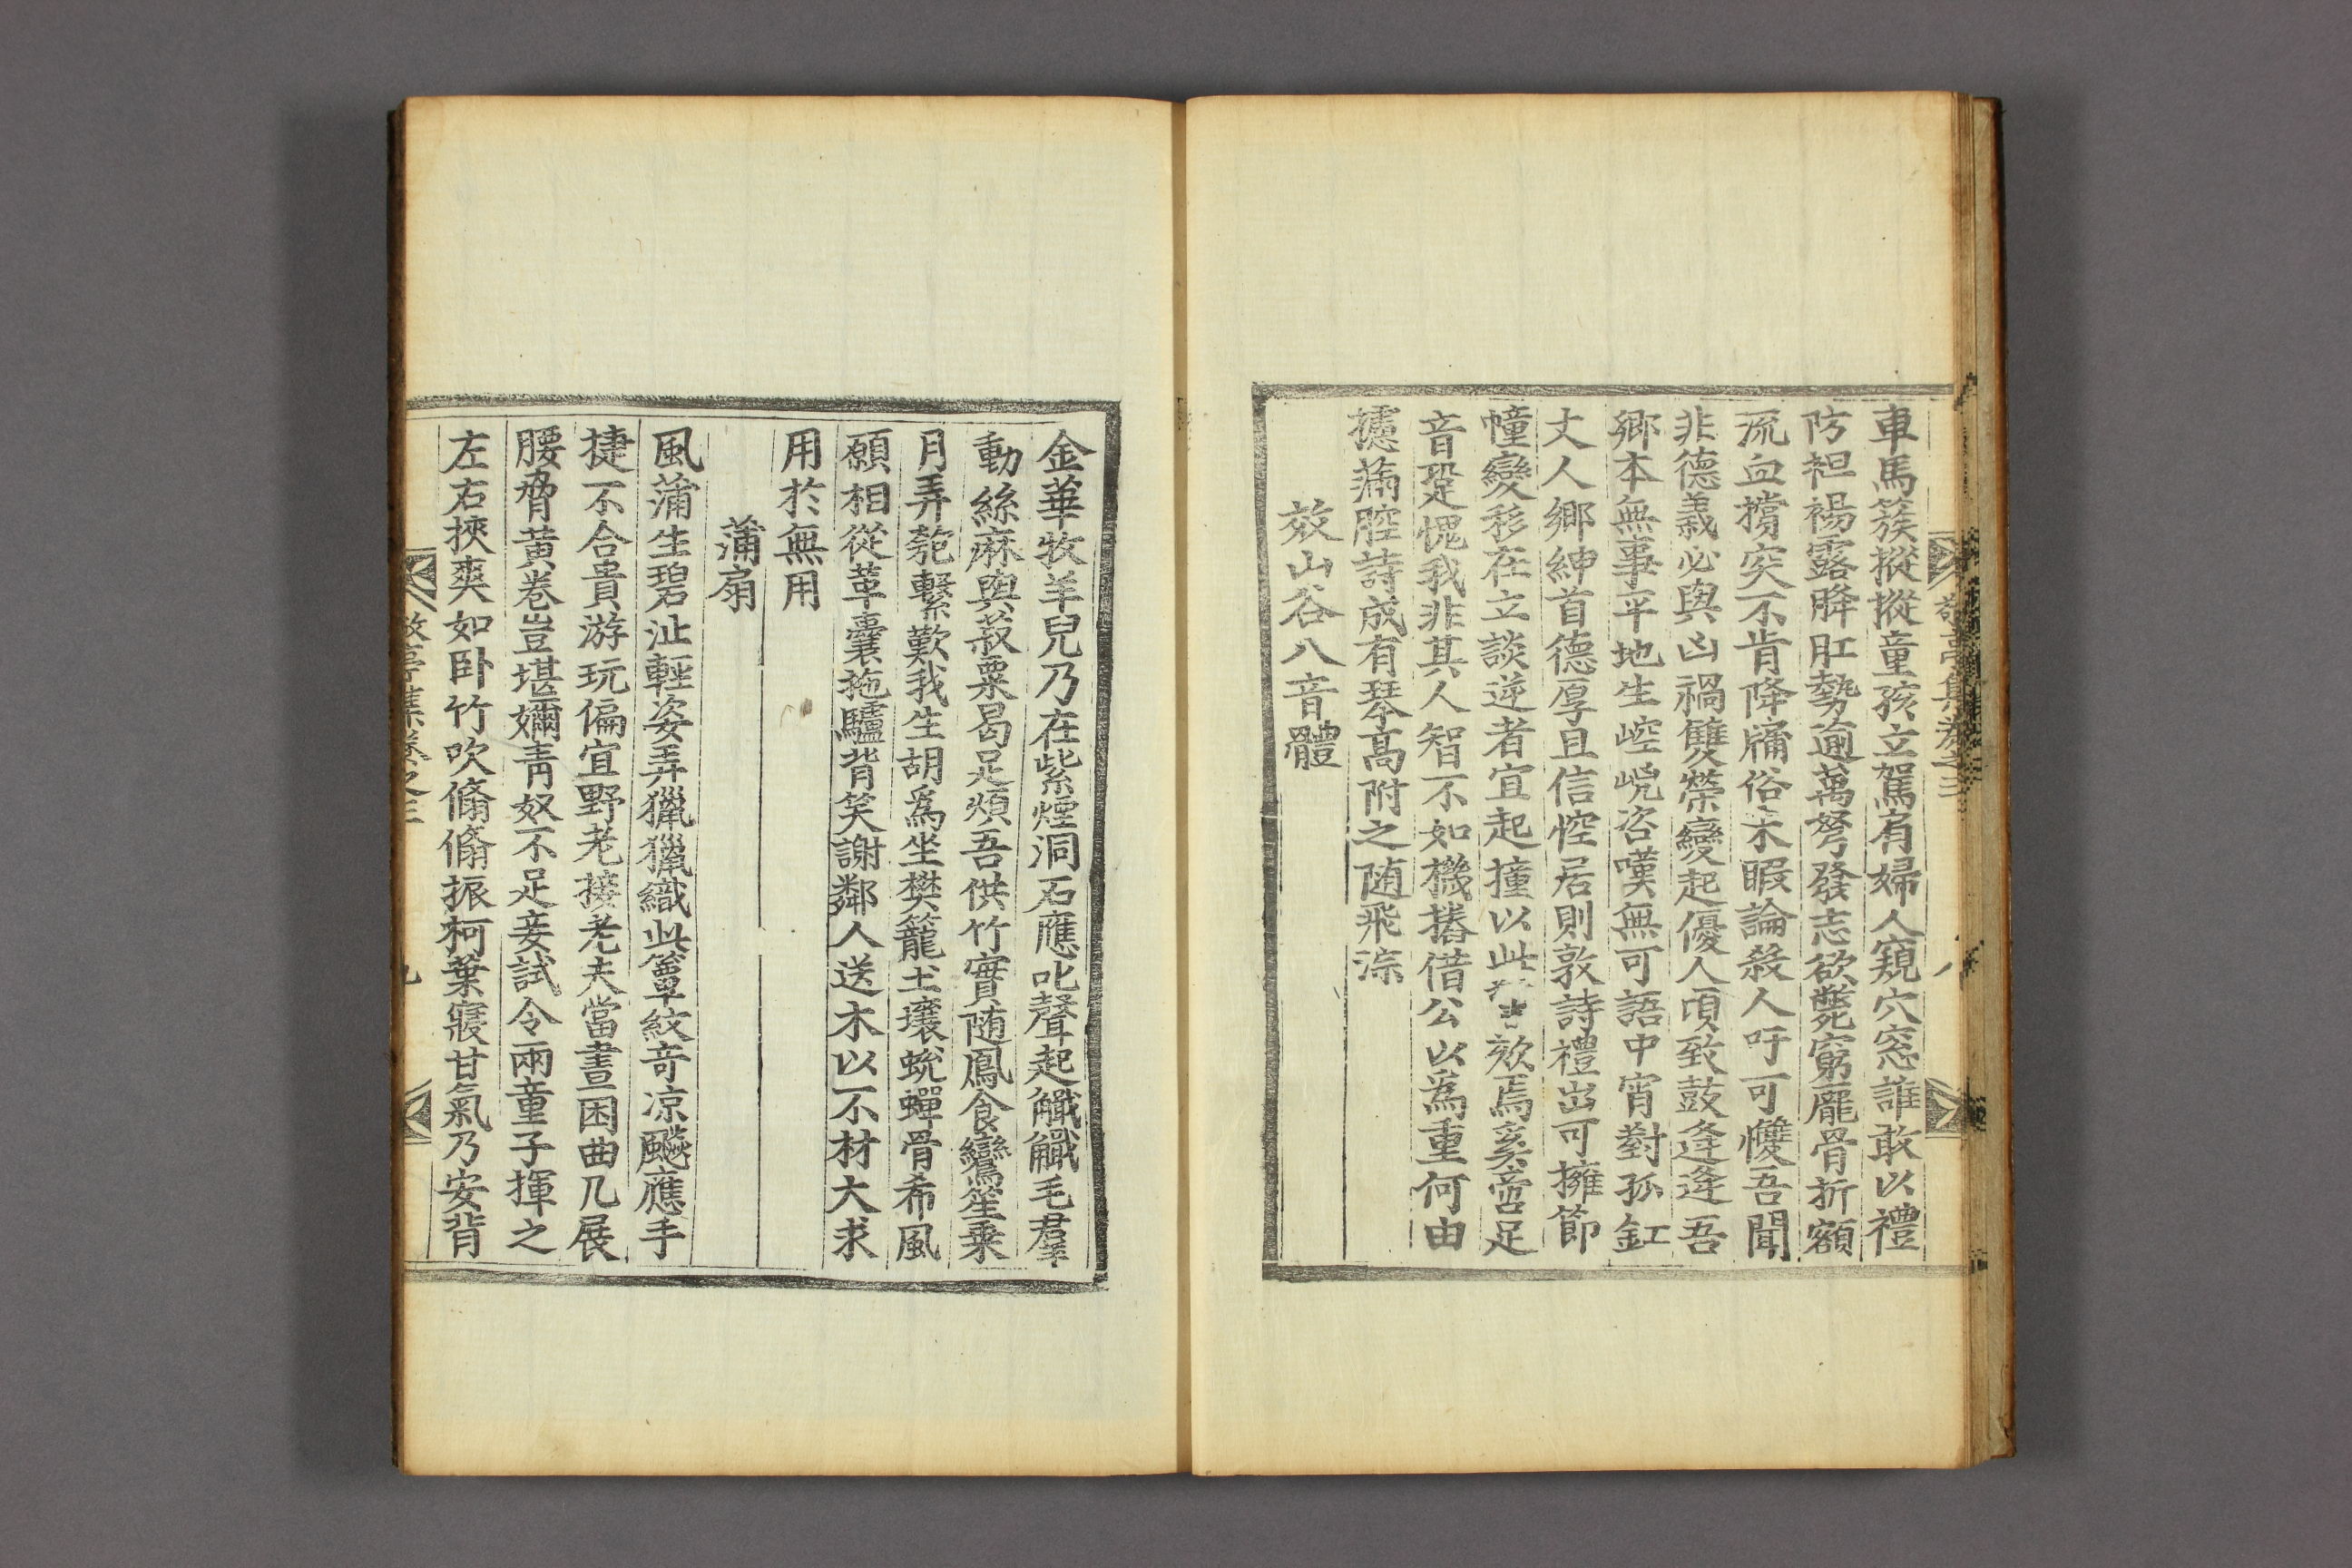 車馬簇摐摐童孩立駕肩婦人窺穴窓誰敢以禮
防袒裼露胮肛勢逾萬弩發志欲斃窮厖骨折額
流血擋突不肯降牗俗未暇論殺人吁可㦜吾聞
非德義必與凶禍雙榮變起優人頃致鼓逄逄吾
鄉本無事平地生崆㟅咨嘆無可語中宵對孤釭
丈人鄉紳首德厚且信悾居則敦詩禮出可擁節
幢變移在立談逆者宜起撞以此 欬焉奚啻足
音跫愧我非其人智不如機摏借公以爲重何由
攄滿腔詩成有琴高附之随飛淙
效山谷八音體
金華牧羊兒乃在紫煙洞石應叱聲起觿觿毛羣
動絲麻與菽粟曷足煩吾供竹實随鳳食鸞笙乘
月弄匏繫歎我生胡爲坐樊籠土壤蛻蟬骨希風
願相從革囊拖驢背笑謝鄰人送木以不材大求
用於無用
蒲扇
風蒲生碧沚輕姿弄獵獵織此簟紋奇凉飈應手
捷不合貴游玩偏宜野老接老夫當晝困曲几展
腰脅黄卷豈堪嬭靑奴不足妾試令兩童子揮之
左右挾爽如卧竹吹翛翛振柯葉寢甘氣乃安背
敬亭集卷之三
八
敬亭集卷之三
九